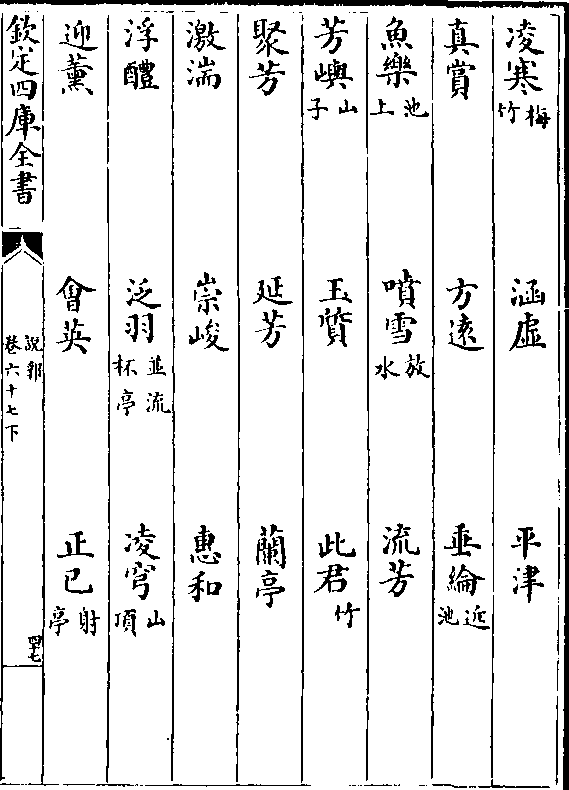 凌寒梅竹 涵虛 平津
真賞 方遠 垂綸近池
魚樂池上 噴雪放水 流芳
芳嶼山子 玉質 此君竹
聚芳 延芳 蘭亭
激湍 崇峻 惠和
浮醴 泛羽並流杯亭 凌穹山頂
迎薰 會英 正已射亭
欽定四庫全書
說郛
卷六十七下
四十七